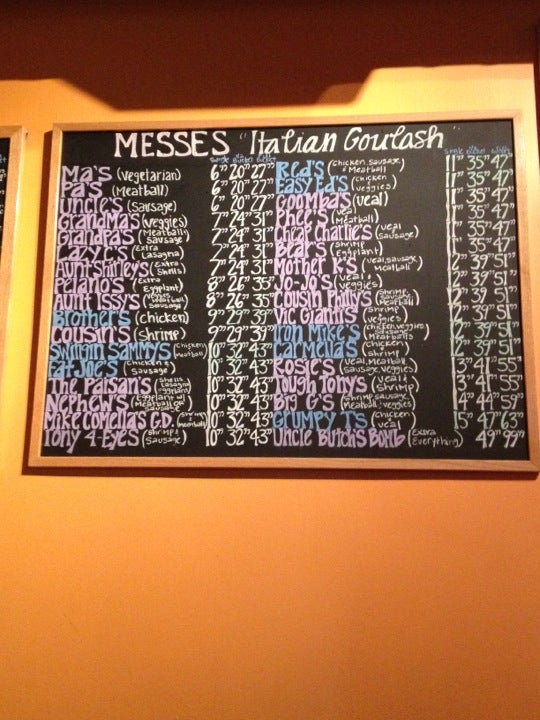 MESSES "Italian Goulash"
Ma's (vegetarian) 6" 20" 27"
Pa's (Meatball) 6" 20" 27"
Uncle's (Sausage) 6" 20" 27"
Grandma's (veggies) 7" 24" 31"
Grandpa's (Meatball & Sausage) 7" 24" 31"
Lazy C's (Extra Lasagna) 7" 24" 31"
Aunt Shirley's (Extra Shells) 7" 24" 31"
Pelano's (Extra Eggplant) 8" 26" 35"
Aunt Issy's 8" 26" 35"
Brother's (chicken) 9" 29" 39"
Cousin's (Shrimp) 9" 29" 39"
Swingin Sammy's (chicken meatball) 10" 32" 43"
Fat Joe's (chicken & Sausage) 10" 32" 43"
The Paisan's 10" 32" 43"
Nephew's 10" 32" 43"
Mike Comella's G.D. 10" 32" 43"
Tony 4-Eyes (Shrimp & Sausage) 10" 32" 43"
Red's (chicken, sausage, Meatball) 11" 35" 47"
Easy Ed's (chicken & veggies) 11" 35" 47"
Goomba's (veal) 11" 35" 47"
Phee's (veal Meatball) 11" 35" 47"
Cheap Charlie's (veal & Sausage) 11" 35" 47"
Bear's (shrimp Eggplant) 11" 35" 47"
Mother K's (veal, sausage, Meatball) 12" 39" 51"
Jo-Jo's (veal & veggies) 12" 39" 51"
Cousin Philly's (Shrimp, Sausage, Meatball) 12" 39" 51"
Vic Giann's (Shrimp & veggies) 12" 39" 51"
Iron Mike's 12" 39" 51"
Carmella's (chicken & shrimp) 12" 39" 51"
Rosie's (veal, Meatball, Sausage, veggies) 13" 41" 55"
Tough Tony's (veal & Shrimp) 13" 41" 55"
Big G's (Shrimp, sausage, Meatball, veggies) 44" 59"
Grumpy T's (chicken veal) 15" 47" 63"
Uncle Butch's Bomb (Extra Everything) 49" 99"